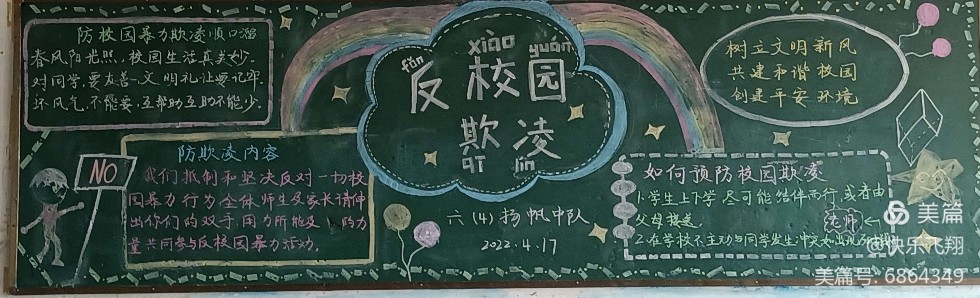 防校园暴力欺凌顺口溜
春风阳光照,校园生活真美妙。
对同学,要友善,文明礼让要记牢。
坏风气,不能要,互帮助互助不能少。
fǎn xiào yuán
反校园
欺凌
qī lín
树立文明新风
共建和谐校园
创建平安环境
NO
防欺凌内容
我们抵制和坚决反对一切校
园暴力行为全体师生及家长请伸
出你们的双手,用力所能及的力
量共同参与反校园暴力活动.
六(4)扬帆中队
2022.4.17
如何预防校园欺凌
1.学生上下学尽可能结伴而行,或者由
父母接送
2.在学校不主动与同学发生冲突
美篇
@快乐飞翔
美篇号: 6864349